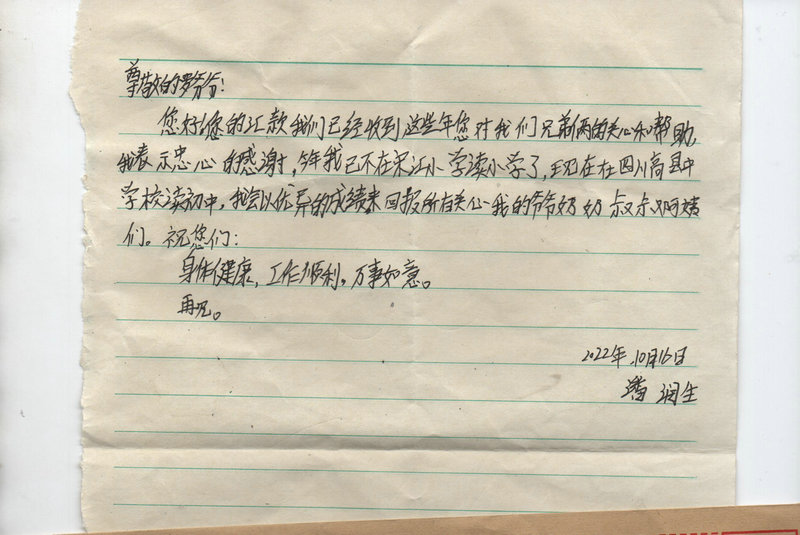 尊敬的罗爷爷:
您好!您的汇款我们已经收到这些年您对我们兄弟俩的关心和帮助,
我表示忠心的感谢,今年我已不在宋江小学读小学了,现在在四川高县中
学校读初中,我会以优异的成绩来回报所有关心我的爷爷奶奶叔叔阿姨
们。祝您们:
身体健康,工作顺利,万事如意。
再见。
2022年.10月16日
潘润生